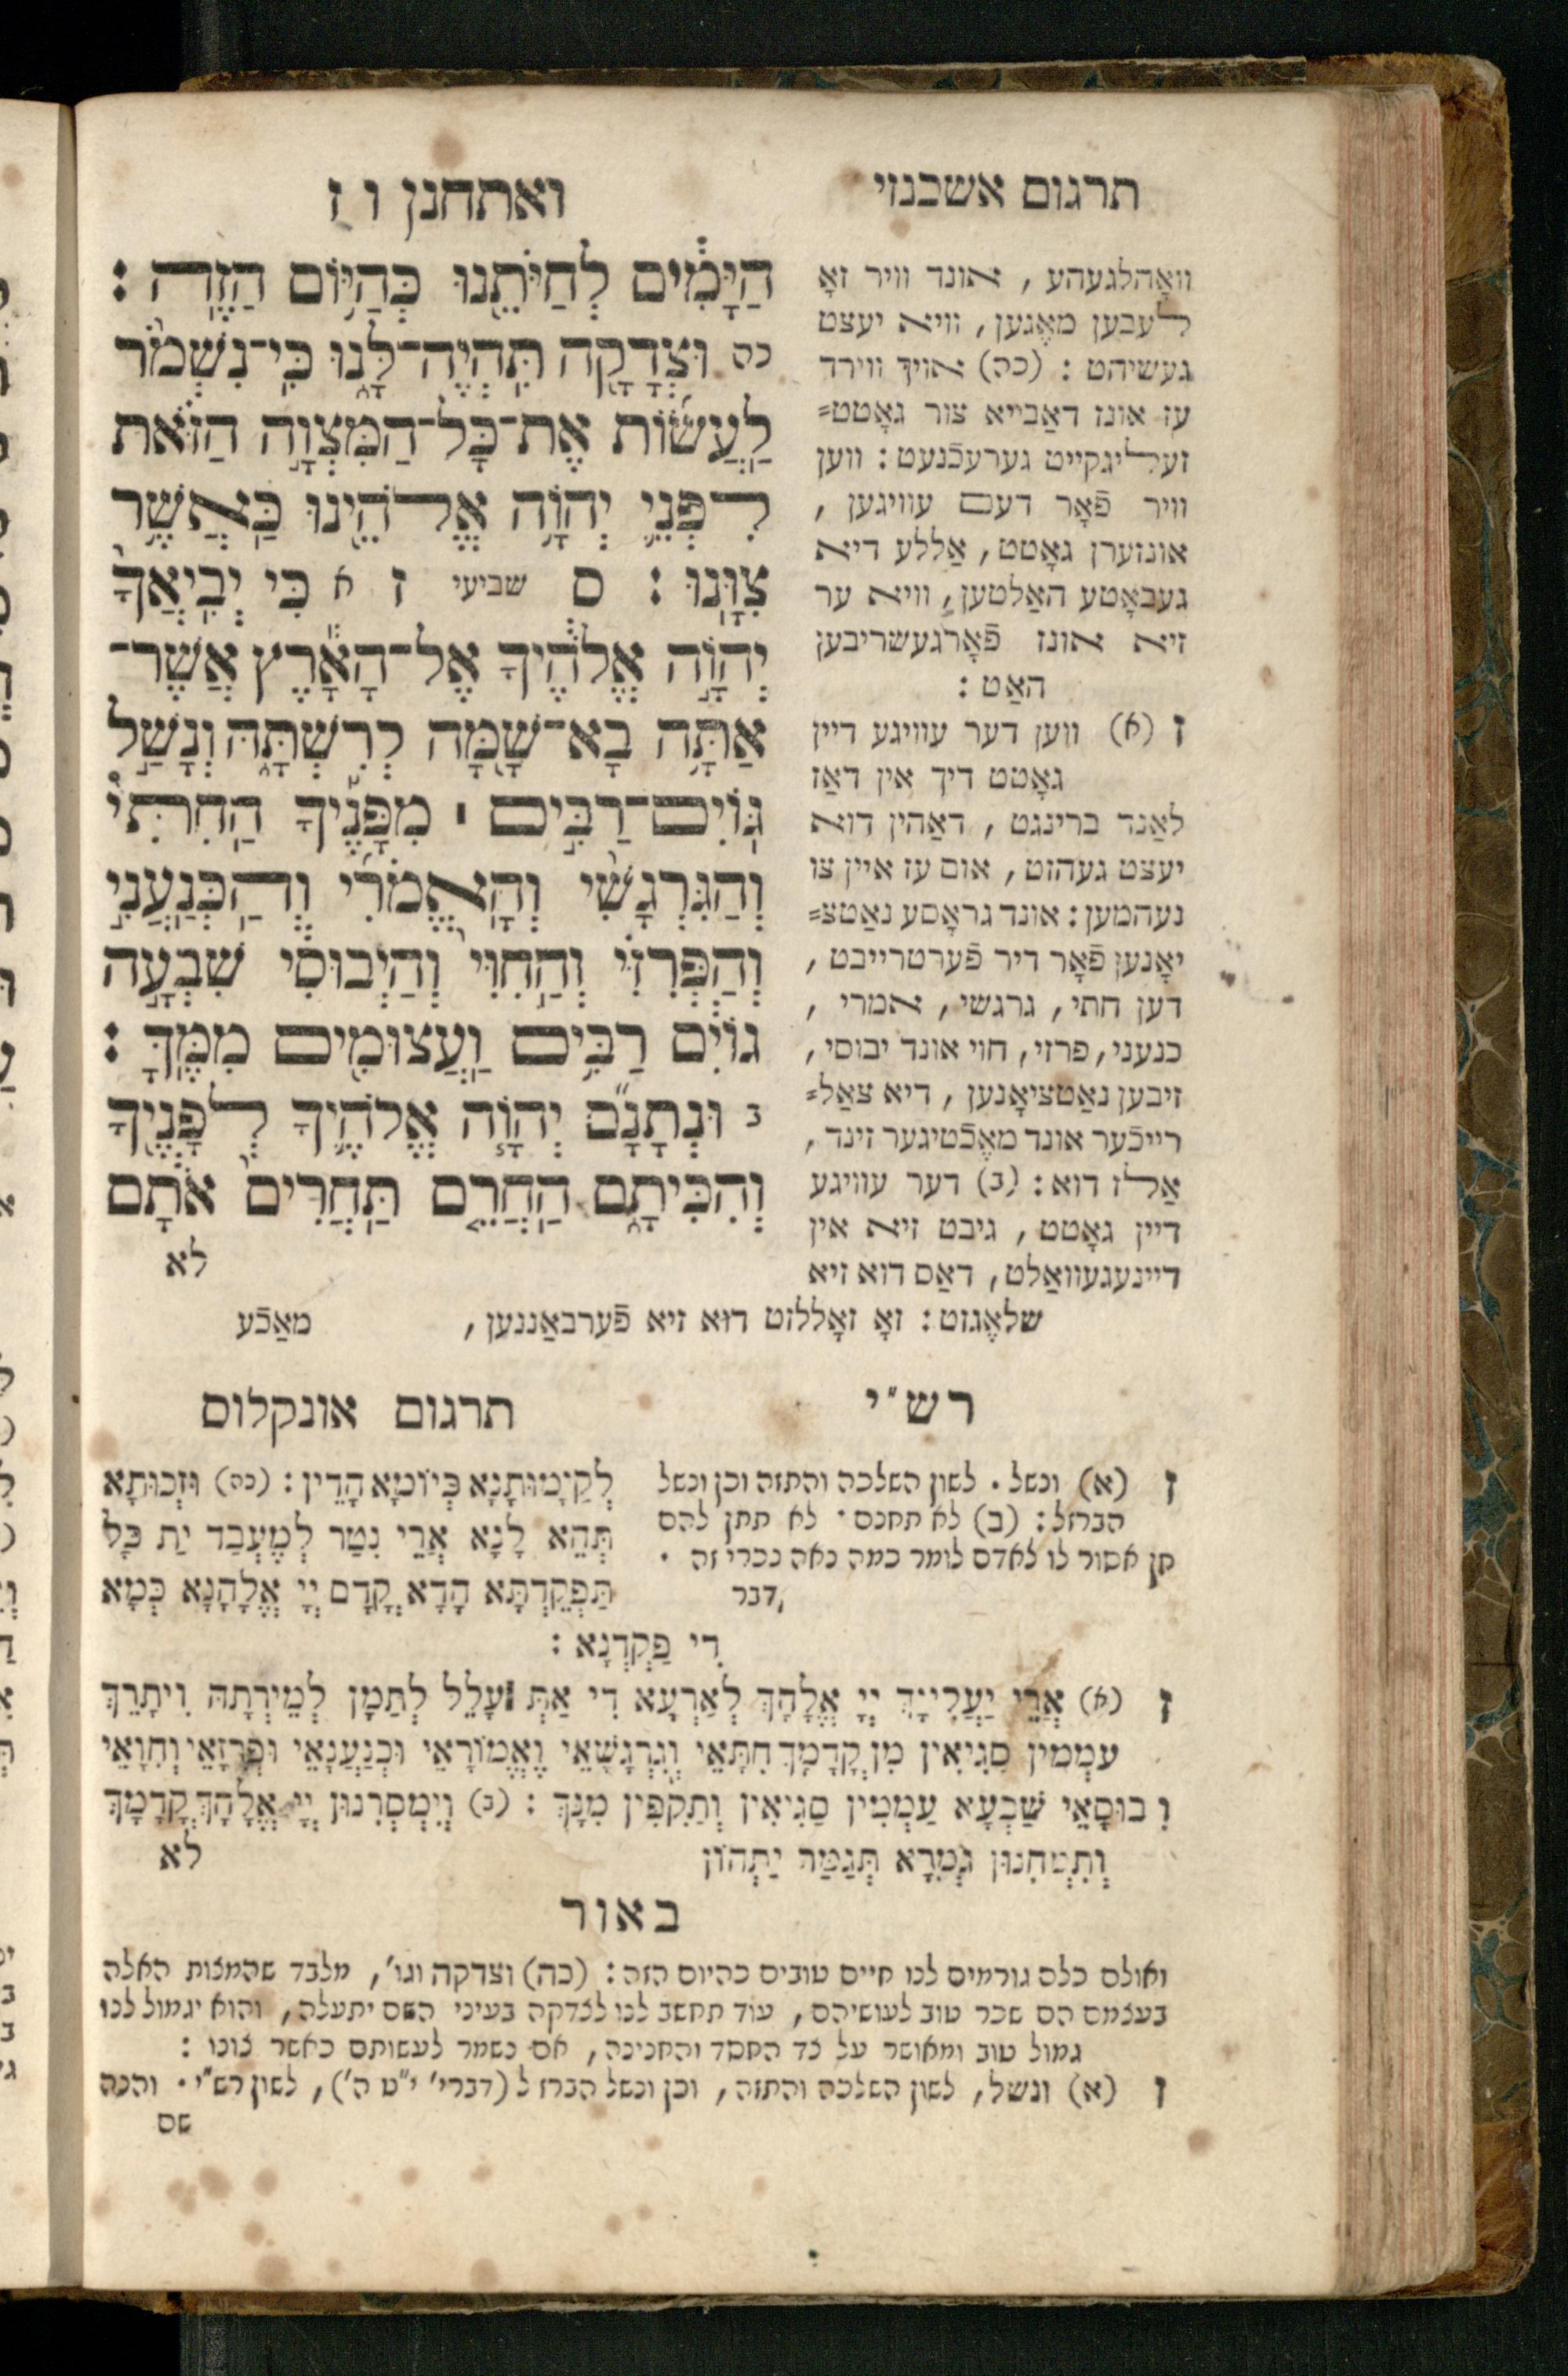 תרגום אשכנזי
ואתחנן ו ז
הַיָּמִ֔ים לְחַיֹּתֵ֖נוּ כְּהַיּ֥וֹם הַזֶּֽה :
כה וּצְדָקָ֖ה תִּֽהְיֶה־לָּ֑נוּ כִּֽי־נִשְׁמֹ֨ר
לַעֲשׂ֜וֹת אֶת־כָּל־הַמִּצְוָ֣ה הַזֹּ֗את
לִפְנֵ֛י יְהוָֹ֥ה אֱלֹהֵ֖ינוּ כַּאֲשֶׁ֥ר
צִוָּֽנוּ : ס שביעי ז א כִּ֤י יְבִֽיאֲךָ֙
יְהוָֹ֣ה אֱלֹהֶ֔יךָ אֶל־הָאָ֕רֶץ אֲשֶׁר־
אַתָּ֥ה בָא־שָׁ֖מָּה לְרִשְׁתָּ֑הּ וְנָשַׁ֣ל
גּֽוֹיִם־רַבִּ֣ים ׀ מִפָּנֶ֡יךָ הַֽחִתִּי֩
וְהַגִּרְגָּשִׁ֨י וְהָאֱמֹרִ֜י וְהַכְּנַעֲנִ֣י
וְהַפְּרִזִּ֗י וְהַֽחִוִּי֙ וְהַיְבוּסִ֔י שִׁבְעָ֣ה
גוֹיִ֔ם רַבִּ֥ים וַעֲצוּמִ֖ים מִמֶּֽךָּ :
ב וּנְתָנָ֞ם יְהוָֹ֧ה אֱלֹהֶ֛יךָ לְפָנֶ֖יךָ
וְהִכִּיתָ֑ם הַחֲרֵ֤ם תַּחֲרִים֙ אֹתָ֔ם
לא
וואָהלגעהע, אונד וויר זאָ
לעבען מאֶגען, וויא יעצט
געשיהט : (כה) אויך ווירד
עז אונז דאַבייא צור גאָטט=
זעליגקייט גערעכֿנעט : ווען
וויר פֿאָר דעם עוויגען,
אונזערן גאָטט, אַללע דיא
געבאָטע האַלטען, וויא ער
זיא אונז פֿאָרגעשריבען
האַט :
ז (א) ווען דער עוויגע דיין
גאָטט דיך אין דאַז
לאַנד ברינגט, דאַהין דוא
יעצט געהזט, אום עז איין צו
נעהמען : אונד גראָסע נאַטצ=
יאָנען פֿאָר דיר פֿערטרייבט,
דען חתי, גרגשי, אמרי,
כנעני, פרזי, חוי אונד יבוסי,
זיבען נאַטציאָנען, דיא צאַל=
רייכֿער אונד מאֶכֿטיגער זינד,
אַלז דוא : (ב) דער עוויגע
דיין גאָטט, גיבט זיא אין
דיינעגעוואַלט, דאַס דוא זיא
שלאֶגזט : זאָ זאָללזט דוא זיא פֿערבאַננען,
מאַכֿע
רש״י
ז (א) ונשל . לשון השלכה והתזה וכן ונשל
הברזל : (ב) לא תחנם . לא תתן להם
חן אסור לו לאדם לומר כמה נאה נכרי זה .
דבר
תרגום אונקלוס
לְקַיָמוּתָנָא כְּיוֹמָא הָדֵין : (כה) וּזְכוּתָא
תְּהֵא לָנָא אֲרֵי נִטַר לְמֶעְבַד יַת כָּל
תַּפְקֶדְתָּא הָדָא קֳדָם יְיָ אֱלָהָנָא כְּמָא
דִי פַּקְדָנָא :
ז (א) אֲרֵי יַעֲלִינָךְ יְיָ אֱלָהָךְ לְאַרְעָא דִי אַתְּ עָלֵל לְתַמָּן לְמֵירְתָהּ וִיתָרֵךְ
עַמְמִין סַגִיאִין מִן קֳדָמָךְ חִתָּאֵי וְגִרְגָשָׁאֵי וֶאֱמוֹרָאֵי וּכְנַעֲנָאֵי וּפְרִזָאֵי וְחִוָאֵי
וִיבוּסָאֵי שַׁבְעָא עַמְמִין סַגִיאִין וְתַקִפִין מִנָךְ : (ב) וְיִמְסְרִנוּן יְיָ אֱלָהָךְ קֳדָמָךְ
וְתִמְחִנוּן גַמְרָא תְּגַמַּר יַתְהוֹן
לא
באור
ואולם כלם גורמים לנו חיים טובים כהיום הזה : (כה) וצדקה וגו', מלבד שהמצות האלה
בעצמם הם שכר טוב לעושיהם, עוד תחשב לנו לצדקה בעיני השם יתעלה, והוא יגמול לנו
גמול טוב ומאושר על צד החסד והחנינה, אם נשמר לעשותם כאשר צונו :
ז (א) ונשל, לשון השלכה והתזה, וכן ונשל הברזל (דברי' י״ט ה'), לשון רש״י . והנה
שם